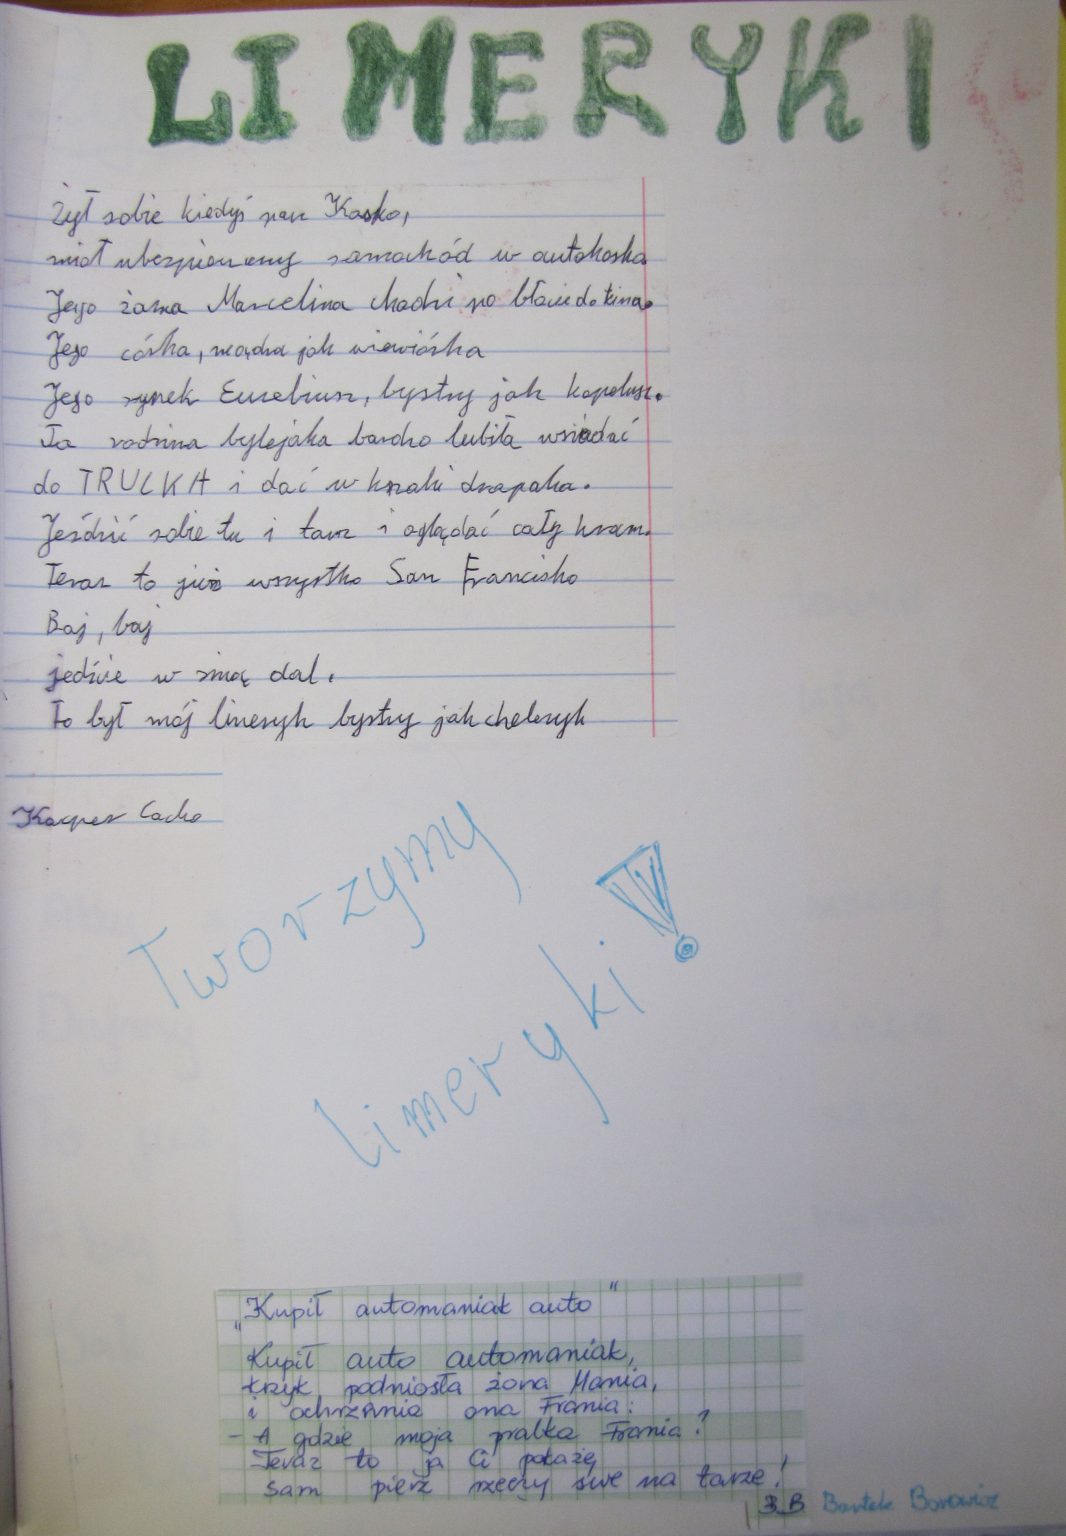 LIMERYKI
Żył sobie kiedyś pan Kasko,
miał ubezpieczony samochód w autokasko
Jego żona Marcelina chodzi po błocie do kina.
Jego córka, mądra jak wiewiórka
Jego synek Euzebiusz, bystry jak kapelusz.
Ta rodzina bylejaka bardzo lubiła wsiadać
do TRUCKA i dać w krzaki drapaka.
Jeździć sobie tu i tam i oglądać cały kram.
Teraz to już wszystko San Francisko
Baj, baj
jedzie w siną dal.
To był mój limeryk bystry jak choleryk
Kacper Cacko
Tworzymy
limeryki!
"Kupił automaniak auto"
Kupił auto automaniak,
krzyk podniosła żona Mania,
i ochrzania ona Frania:
- A gdzie moja pralka Frania?
Teraz to ja Ci pokażę
sam pierz rzeczy swe na tarze!
3 B Bartek Borowicz